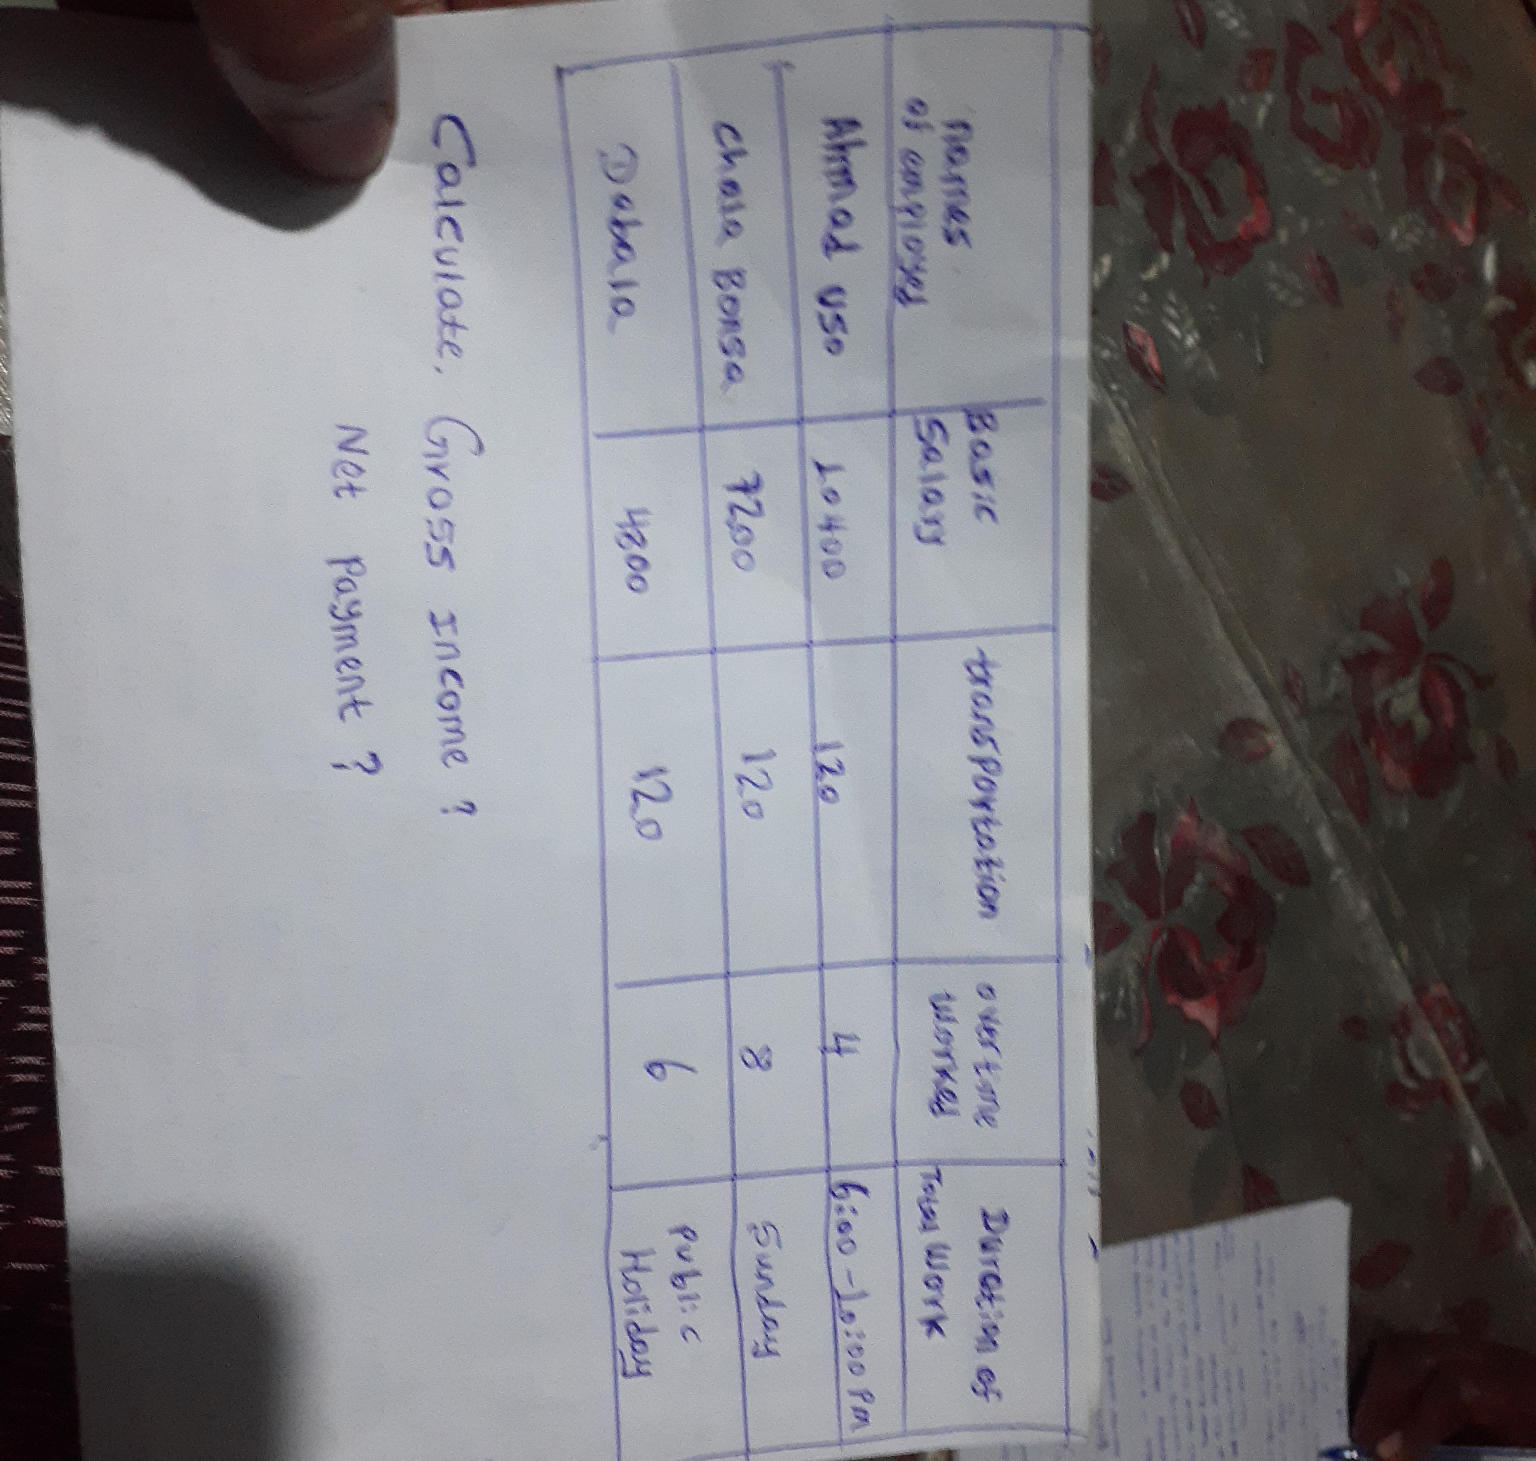 names of employes Basic Salary transportation overtime worked Duration of Total work
Ahmad uso 10400 120 4 6:00 - 10:00 PM
Chala Bonsa 7200 120 8 Sunday
Dabala 4800 120 6 Public Holiday
Calculate, Gross Income ?
Net Payment ?